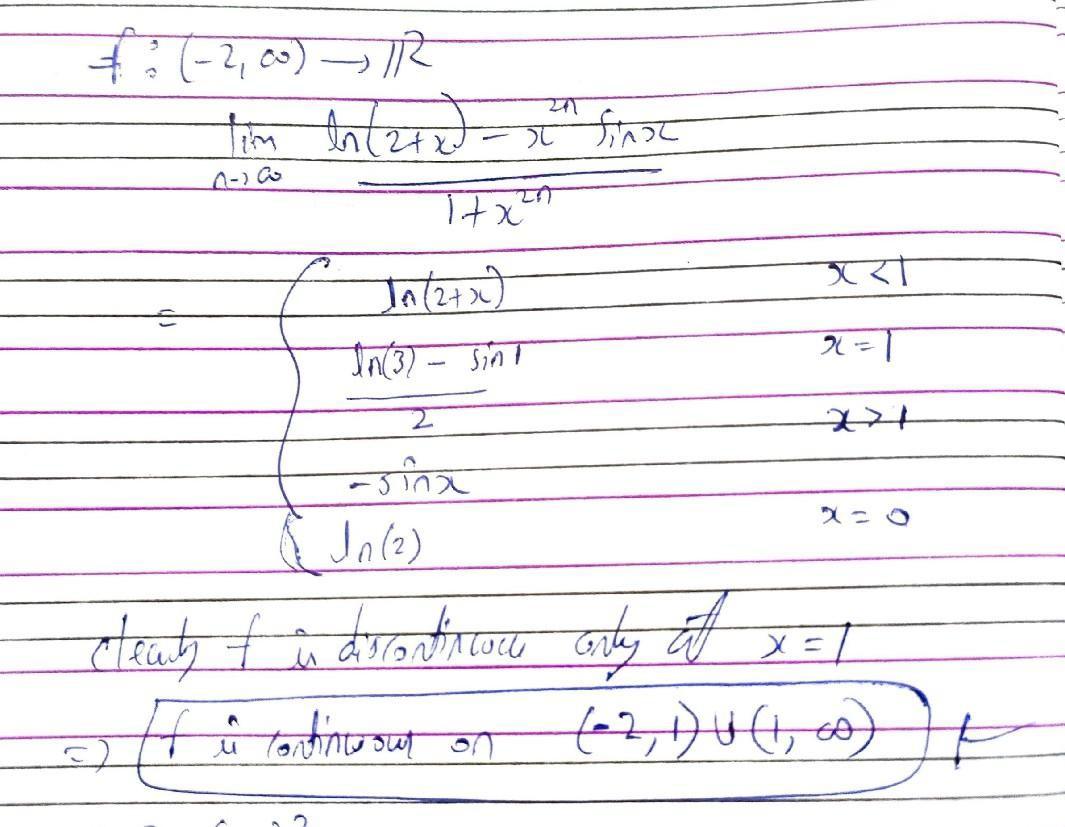 f : (-2, ∞) → ℝ
lim n→∞ (ln(2+x) - x^{2n} sinx) / (1+x^{2n})
= { ln(2+x) x<1
(ln(3) - sin1) / 2 x=1
-sinx x>1
ln(2) x=0
clearly f is discontinuous only at x=1
⇒ f is continuous on (-2, 1) ∪ (1, ∞)